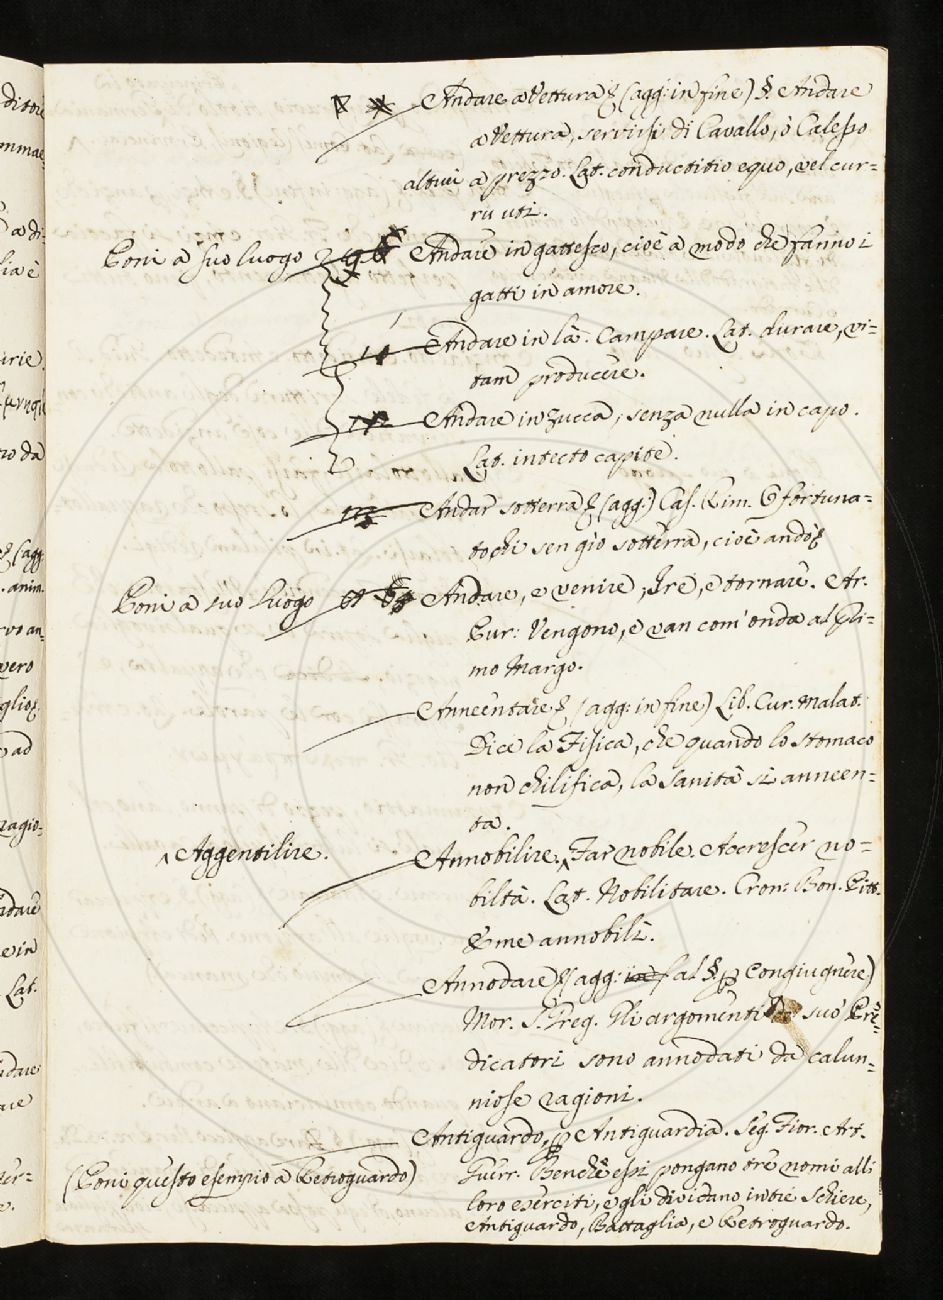 Andare a Vettura (agg: in fine) §. Andare
a Vettura, servirsi di Cavallo, ò Calesso
altrui a prezzo. Lat. conductitio equo, vel cur-
ru uti.
Poni a suo luogo
Andare in gattesco, cioè a modo che fanno i
gatti in amore.
Andare in là. Campare. Lat. durare, vi-
tam producere.
Andare in zucca, senza nulla in capo.
Lat. intecto capite.
Andar sotterra (agg.) Cas. Rim. O fortuna-
to chi sen gìo sotterra, cioè andò
Poni a suo luogo
Andare, e venire, Ire, e tornare. Ar.
Fur: Vengono, e van com'onda al Pri-
mo Margo.
Anneentare (agg: in fine) Lib. Cur. Malat.
Dice la Fisica, che quando lo stomaco
non chilifica, la Sanità si anneen-
ta.
^ Aggentilire.
Annobilire, ^ Far nobile. Accrescer no-
biltà. Lat. Nobilitare. Cron: Bon. Pitt.
E me annobilì.
Annodare (agg: in f al § p Congiugnere)
Mor. S. Greg. Gli argomenti de' suo' Pre-
dicatori sono annodati da calun-
niose ragioni.
Antiguardo, p Antiguardia. Seg. Fior. Art.
(Poni questo esempio a Retroguardo)
Guerr. Benchè essi pongano tre nomi alli
loro eserciti, e gli dividano in tre Schiere,
Antiguardo, Battaglia, e Retroguardo.